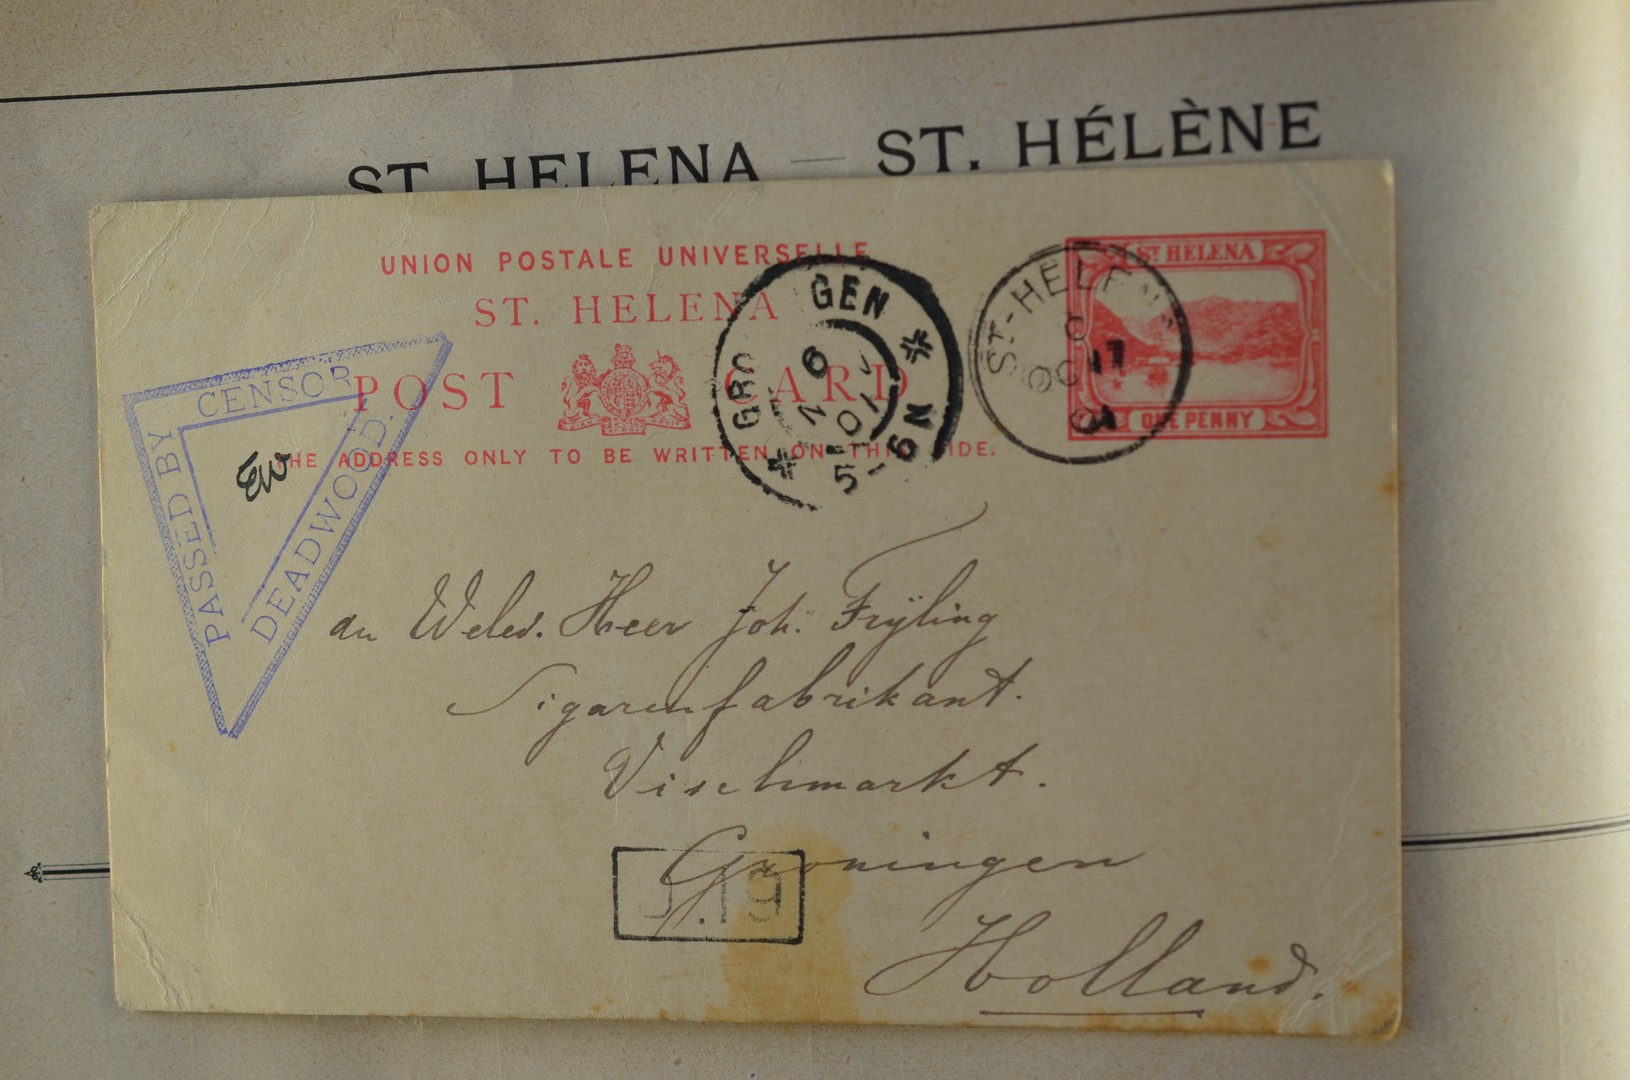 ST. HELENA — ST. HÉLÈNE
UNION POSTALE UNIVERSELLE
ST. HELENA
POST CARD
THE ADDRESS ONLY TO BE WRITTEN ON THIS SIDE.
ST HELENA
ONE PENNY
ST-HELENA
C
OC 17
01
GRO GEN
5-6N
PASSED BY
CENSOR
DEADWOOD.
EW
an Weled. Heer Joh. Frÿling
Sigarenfabrikant.
Vischmarkt.
Groningen
Holland.
J.19